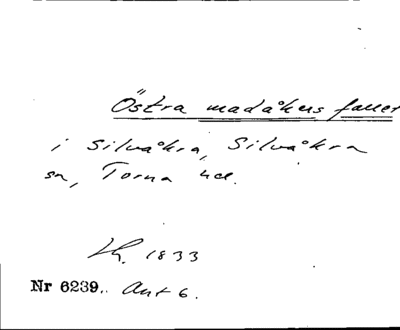 Östra madåkersfallet
i Silvåkra, Silvåkra
sn, Torna hd.
Lh. 1833
Nr 6239. Akt 6.